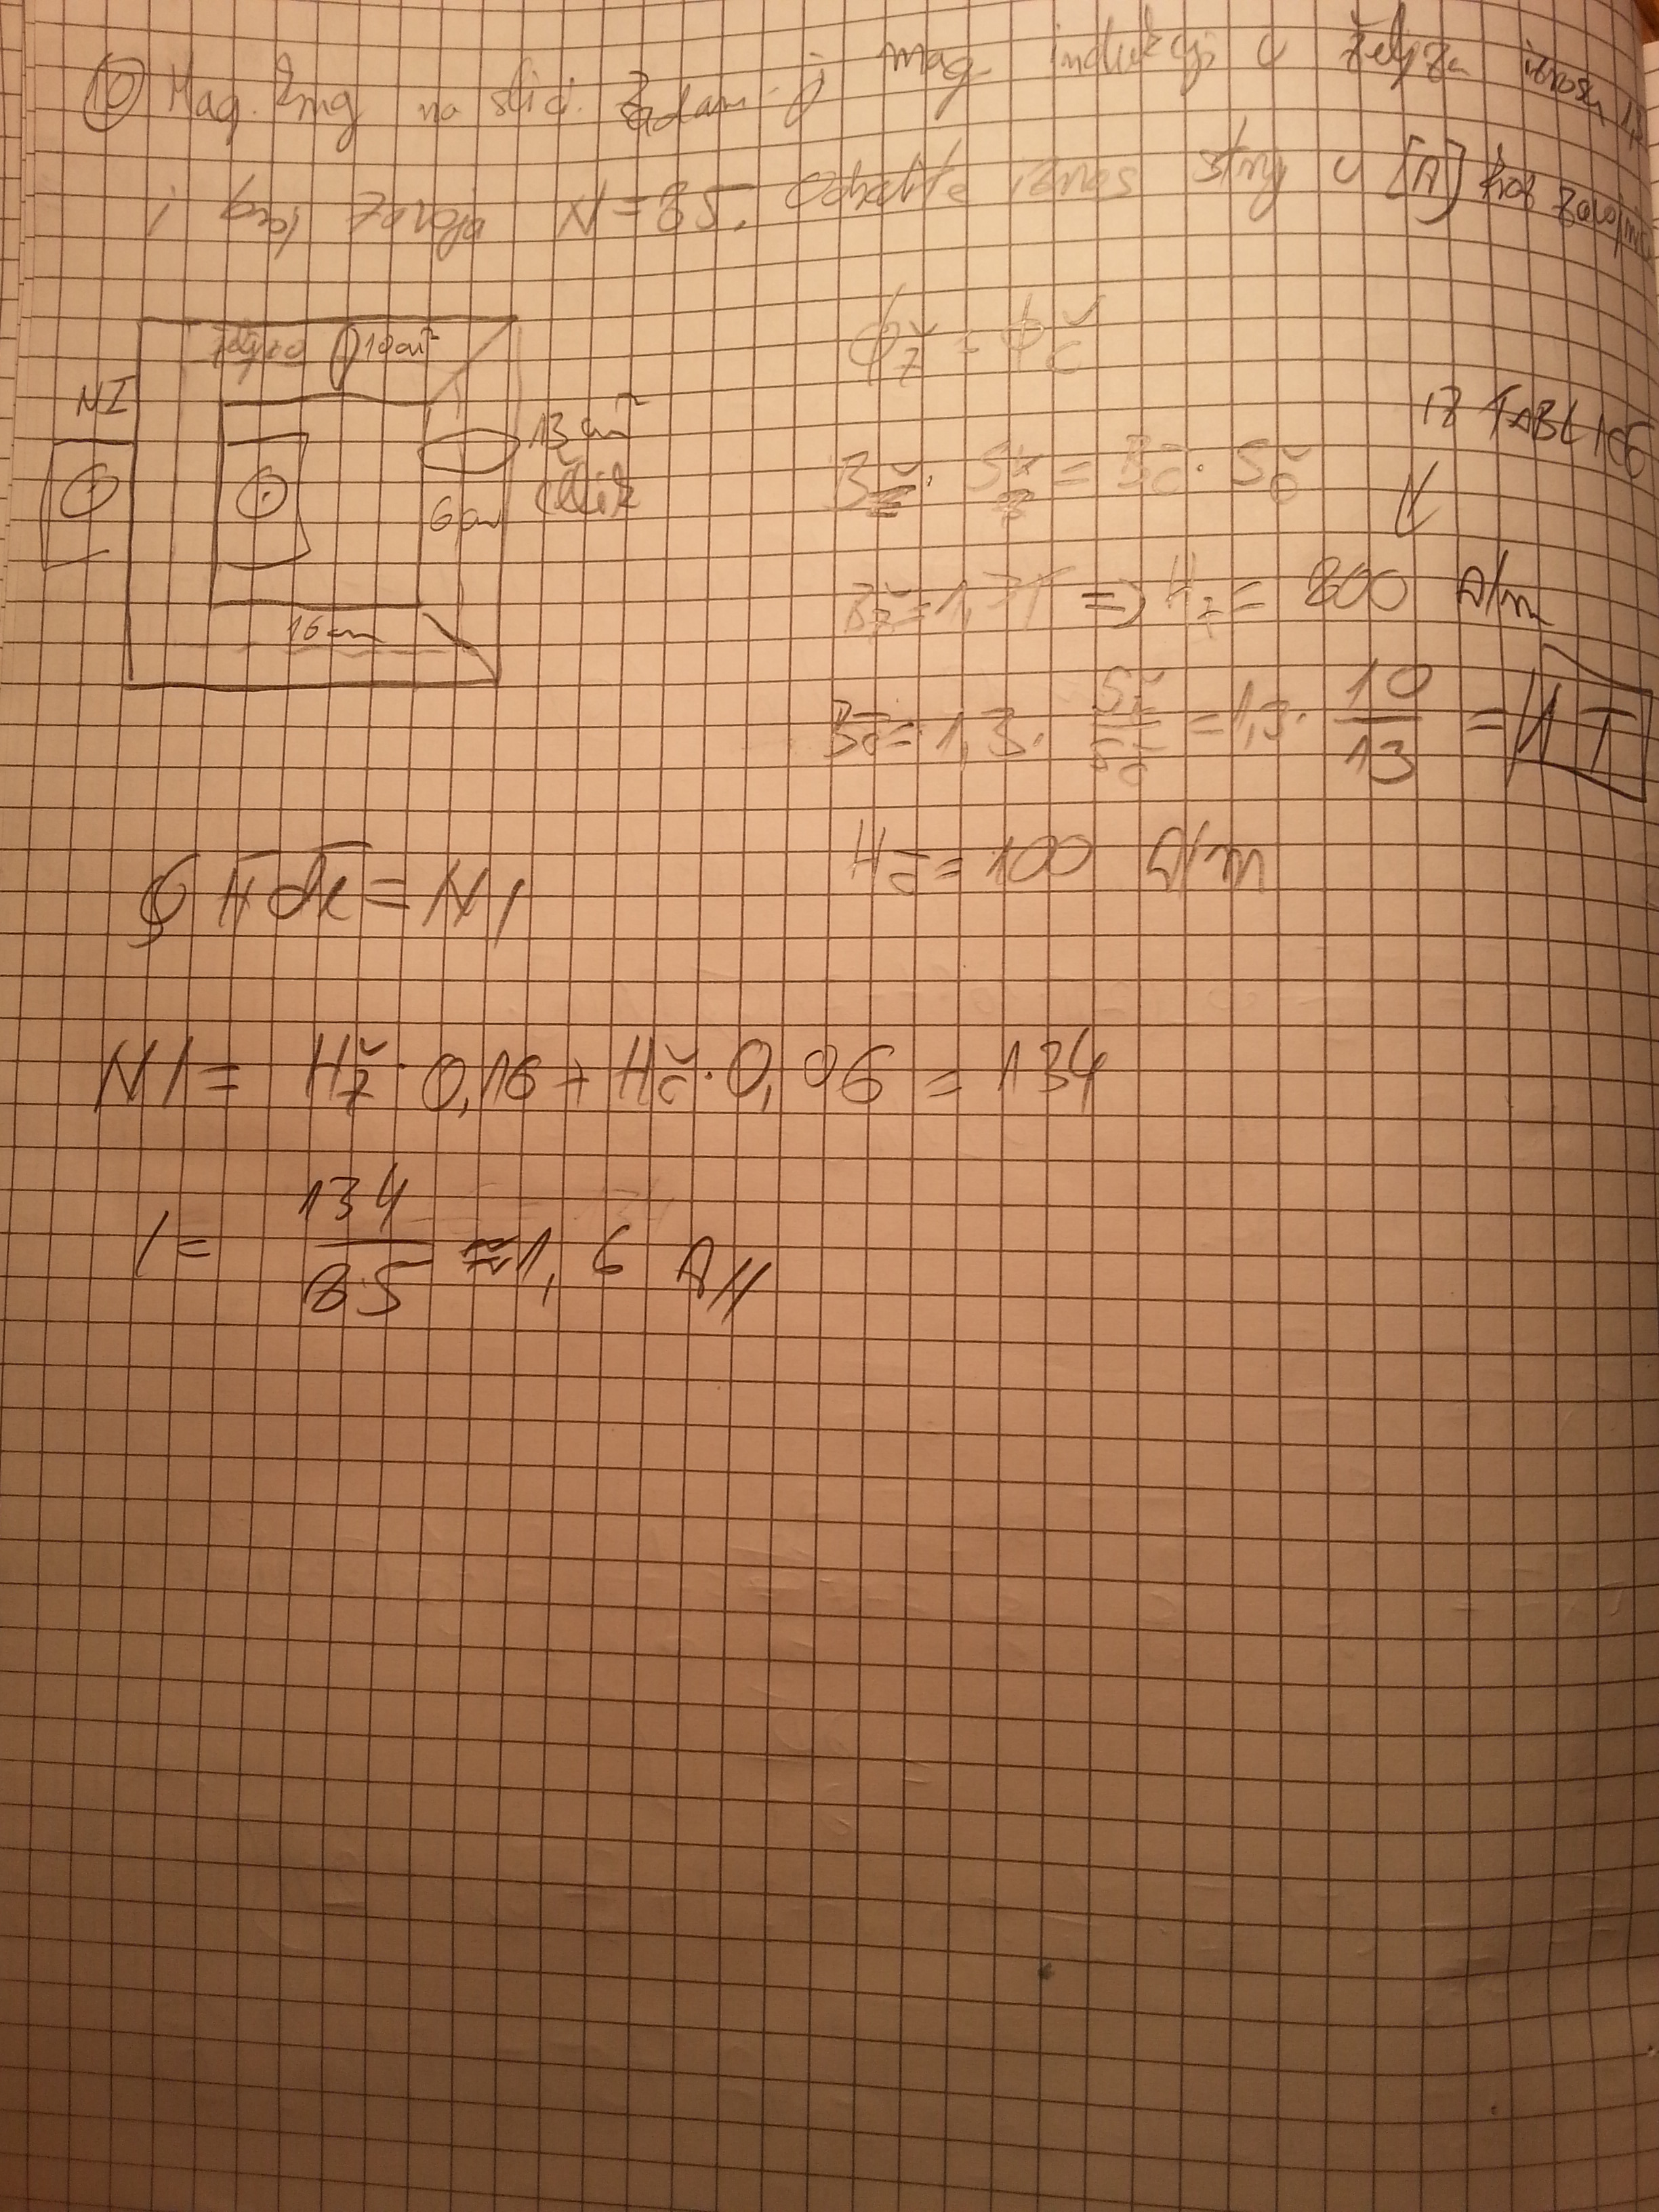 10 Mag. krug na slici. Zadana je mag indukcija u željezu iznosu 1,3
i broj zavoja N = 85. Odredite iznos struje u [A] kroz zavojnicu
željezo 10 cm²
NI
13 cm²
čelik
6 cm
16 cm
ϕž = ϕč
Bž · Sž = Bč · Sč
IZ TABLICE
Bž = 1,3T => Hž = 800 A/m
Bč = 1,3 · Sž/Sč = 1,3 · 10/13 = 1 T
Hč = 100 A/m
∮ H dl = NI
NI = Hž · 0,16 + Hč · 0,06 = 134
I = 134/85 ≈ 1,6 A //